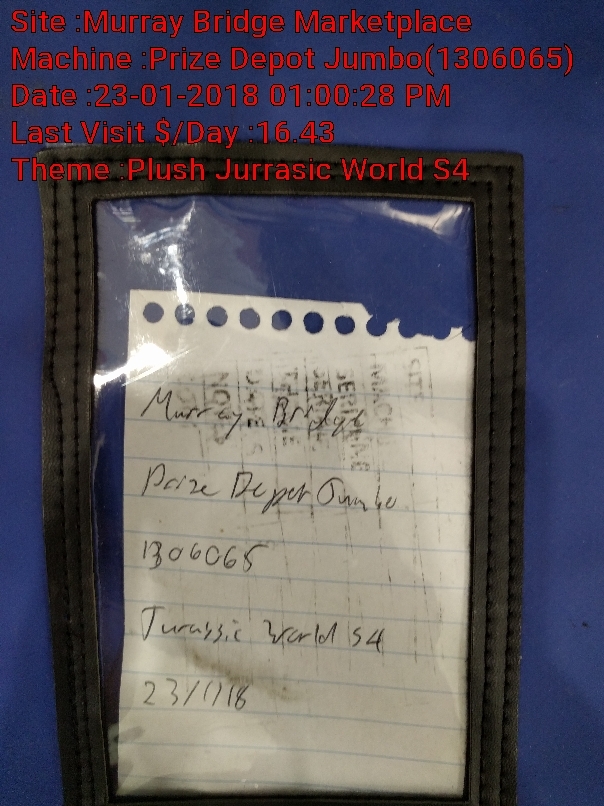 Site :Murray Bridge Marketplace
Machine :Prize Depot Jumbo(1306065)
Date :23-01-2018 01:00:28 PM
Last Visit $/Day :16.43
Theme :Plush Jurrasic World S4
Murray Bridge
Prize Depot Jumbo
1306065
Jurassic World S4
23/1/18